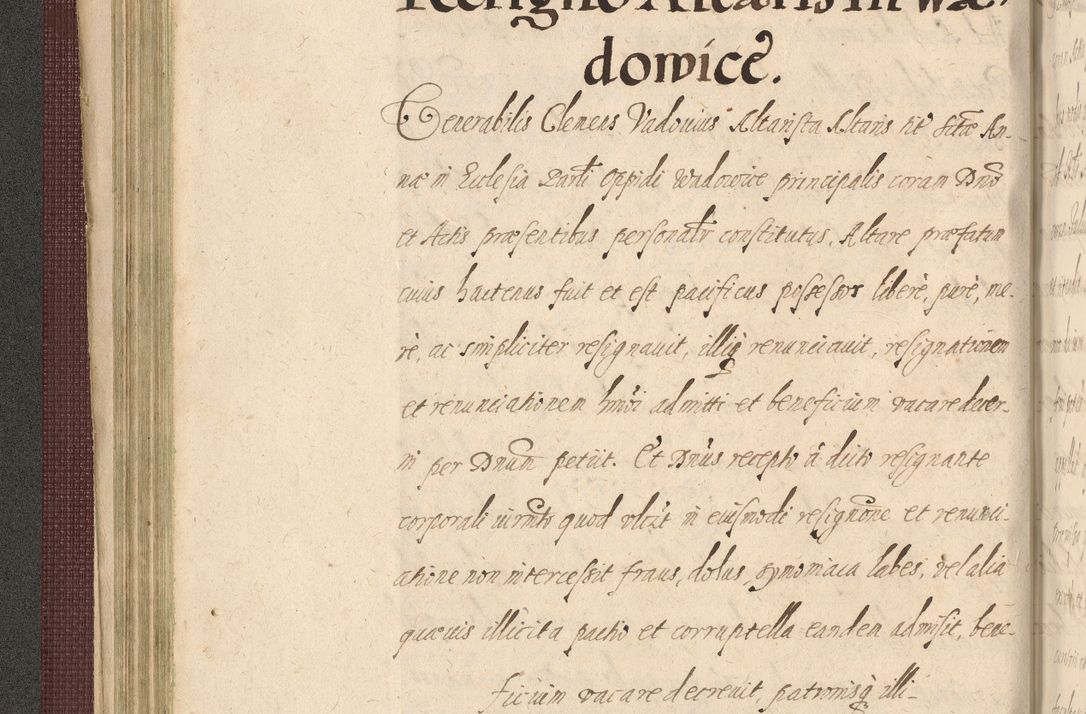 Resigno Altaris in Wa-
dowice.
Venerabilis Clemens Vadovius Altarista Altaris tit Sctae An-
nae in Ecclesia Parli Oppidi Wadowice principalis coram Dno
et Actis praesentibus personalr constitutus, Altare praefatum
cuius hactenus fuit et est pacificus possessor liberè, purè, me-
rè, ac simpliciter resignavit, illiq renunciavit, resignationem
et renunciationem hmoi admitti et beneficium vacare decer-
ni per Dnum petiit. Et Dnus recepto à dicto resignante
corporali iurmto quod videlicet in eiusmodi resignone et renunci-
atione non intercessit fraus, dolus, symoniaca labes, vel alia
quaevis illicita pactio et corruptella eandem admisit, bene-
ficium vacare decrevit, patronisq illi-